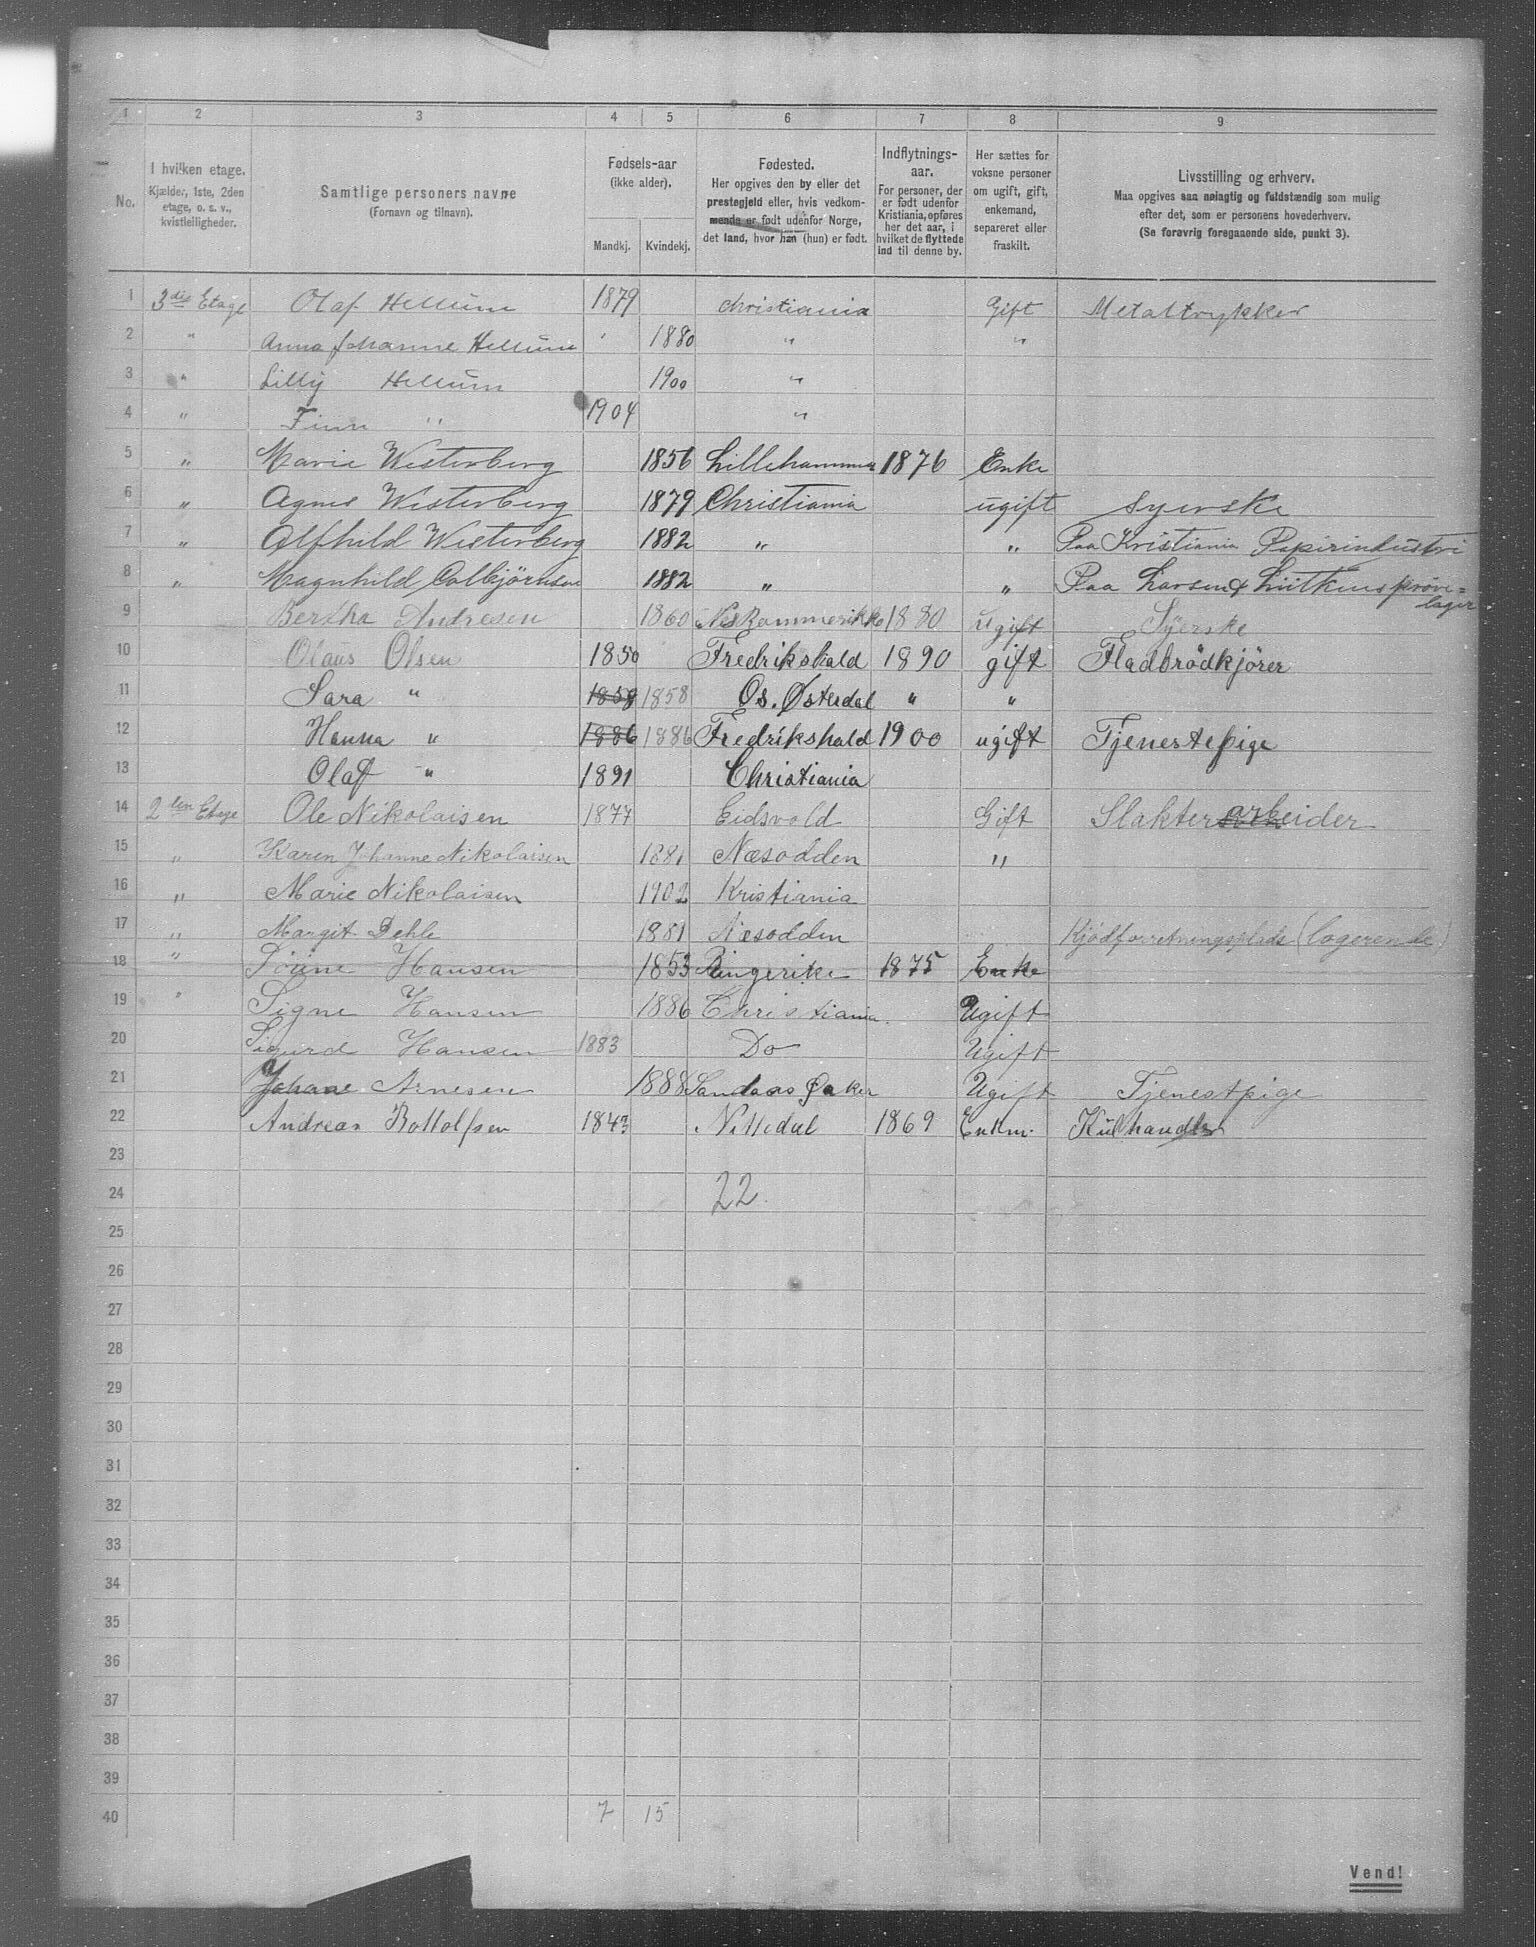 1 2 3 4 5 6 7 8 9
No.
I hvilken etage.
Kjælder, 1ste, 2den
etage, o. s. v.,
kvistleiligheder.
Samtlige personers navne
(Fornavn og tilnavn).
Fødsels-aar
(ikke alder).
Mandkj. Kvindekj.
Fødested.
Her opgives den by eller det
prestegjeld eller, hvis vedkom-
mende er født udenfor Norge,
det land, hvor han (hun) er født.
Indflytnings-
aar.
For personer, der
er født udenfor
Kristiania, opføres
her det aar, i
hvilket de flyttede
ind til denne by.
Her sættes for
voksne personer
om ugift, gift,
enkemand,
separeret eller
fraskilt.
Livsstilling og erhverv.
Maa opgives saa nøiagtig og fuldstændig som mulig
efter det, som er personens hovederhverv.
(Se forøvrig foregaaende side, punkt 3).
1 3die Etage Olaf Hellum 1879 Christiania Gift Metaltrykker
2 " Anna Johanne Hellum " 1880 " "
3 " Lilly Hellum 1900 "
4 " Finn " 1904 "
5 " Marie Westerberg 1856 Lillehammer 1876 Enke
6 " Agnes Westerberg 1879 Christiania ugift Syerske
7 " Alfhild Westerberg 1882 " " Paa Kristiania Papirindustri
8 " Magnhild Colbjørnsen 1882 " " Paa Larsen & Lütkens prøve=
lager
9 Bertha Andresen 1860 Nes Rommerikke 1880 ugift Syerske
10 Olaus Olsen 1850 Fredrikshald 1890 gift Fladbrödkjörer
11 Sara " 1858 1858 Os. Østerdal " "
12 Hanna " 1886 1886 Fredrikshald 1900 ugift Tjenestepige
13 Olaf " 1891 Christiania
14 2den Etage Ole Nikolaisen 1877 Eidsvold Gift Slakterarbeider
15 " Karen Johanne Nikolaisen 1881 Næsodden "
16 " Marie Nikolaisen 1902 Kristiania
17 " Margit Dehle 1881 Næsodden Kjødforretningsplads (logerende)
18 " Hansen 1853 Ringerike 1875 Enke
19 " Signe Hansen 1886 Christiania. Ugift
20 Sigurd Hansen 1883 Do Ugift
21 Johane Arnesen 1888 Ugift Tjenestpige
22 Andreas Bottolfsen 1843 Nittedal 1869 Enkm. Kulhandler
23
24 22.
25
26
27
28
29
30
31
32
33
34
35
36
37
38
39
40 7 15
Vend!